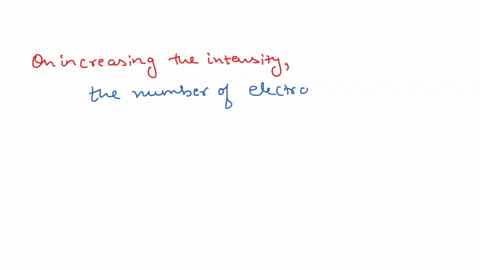 On increasing the intensity,
the number of electro